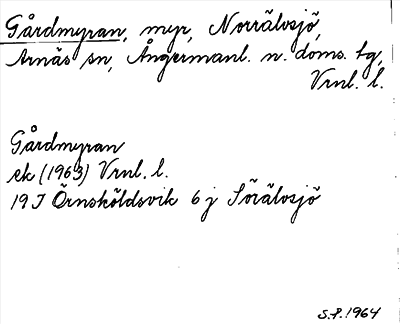 Gårdmyran, myr, Norrälvsjö,
Arnäs sn, Ångermanl. n. doms. tg,
Vrnl. l.
Gårdmyran
ek (1963) Vrnl. l.
19 I Örnsköldsvik 6 j Sörälvsjö
S.P. 1964